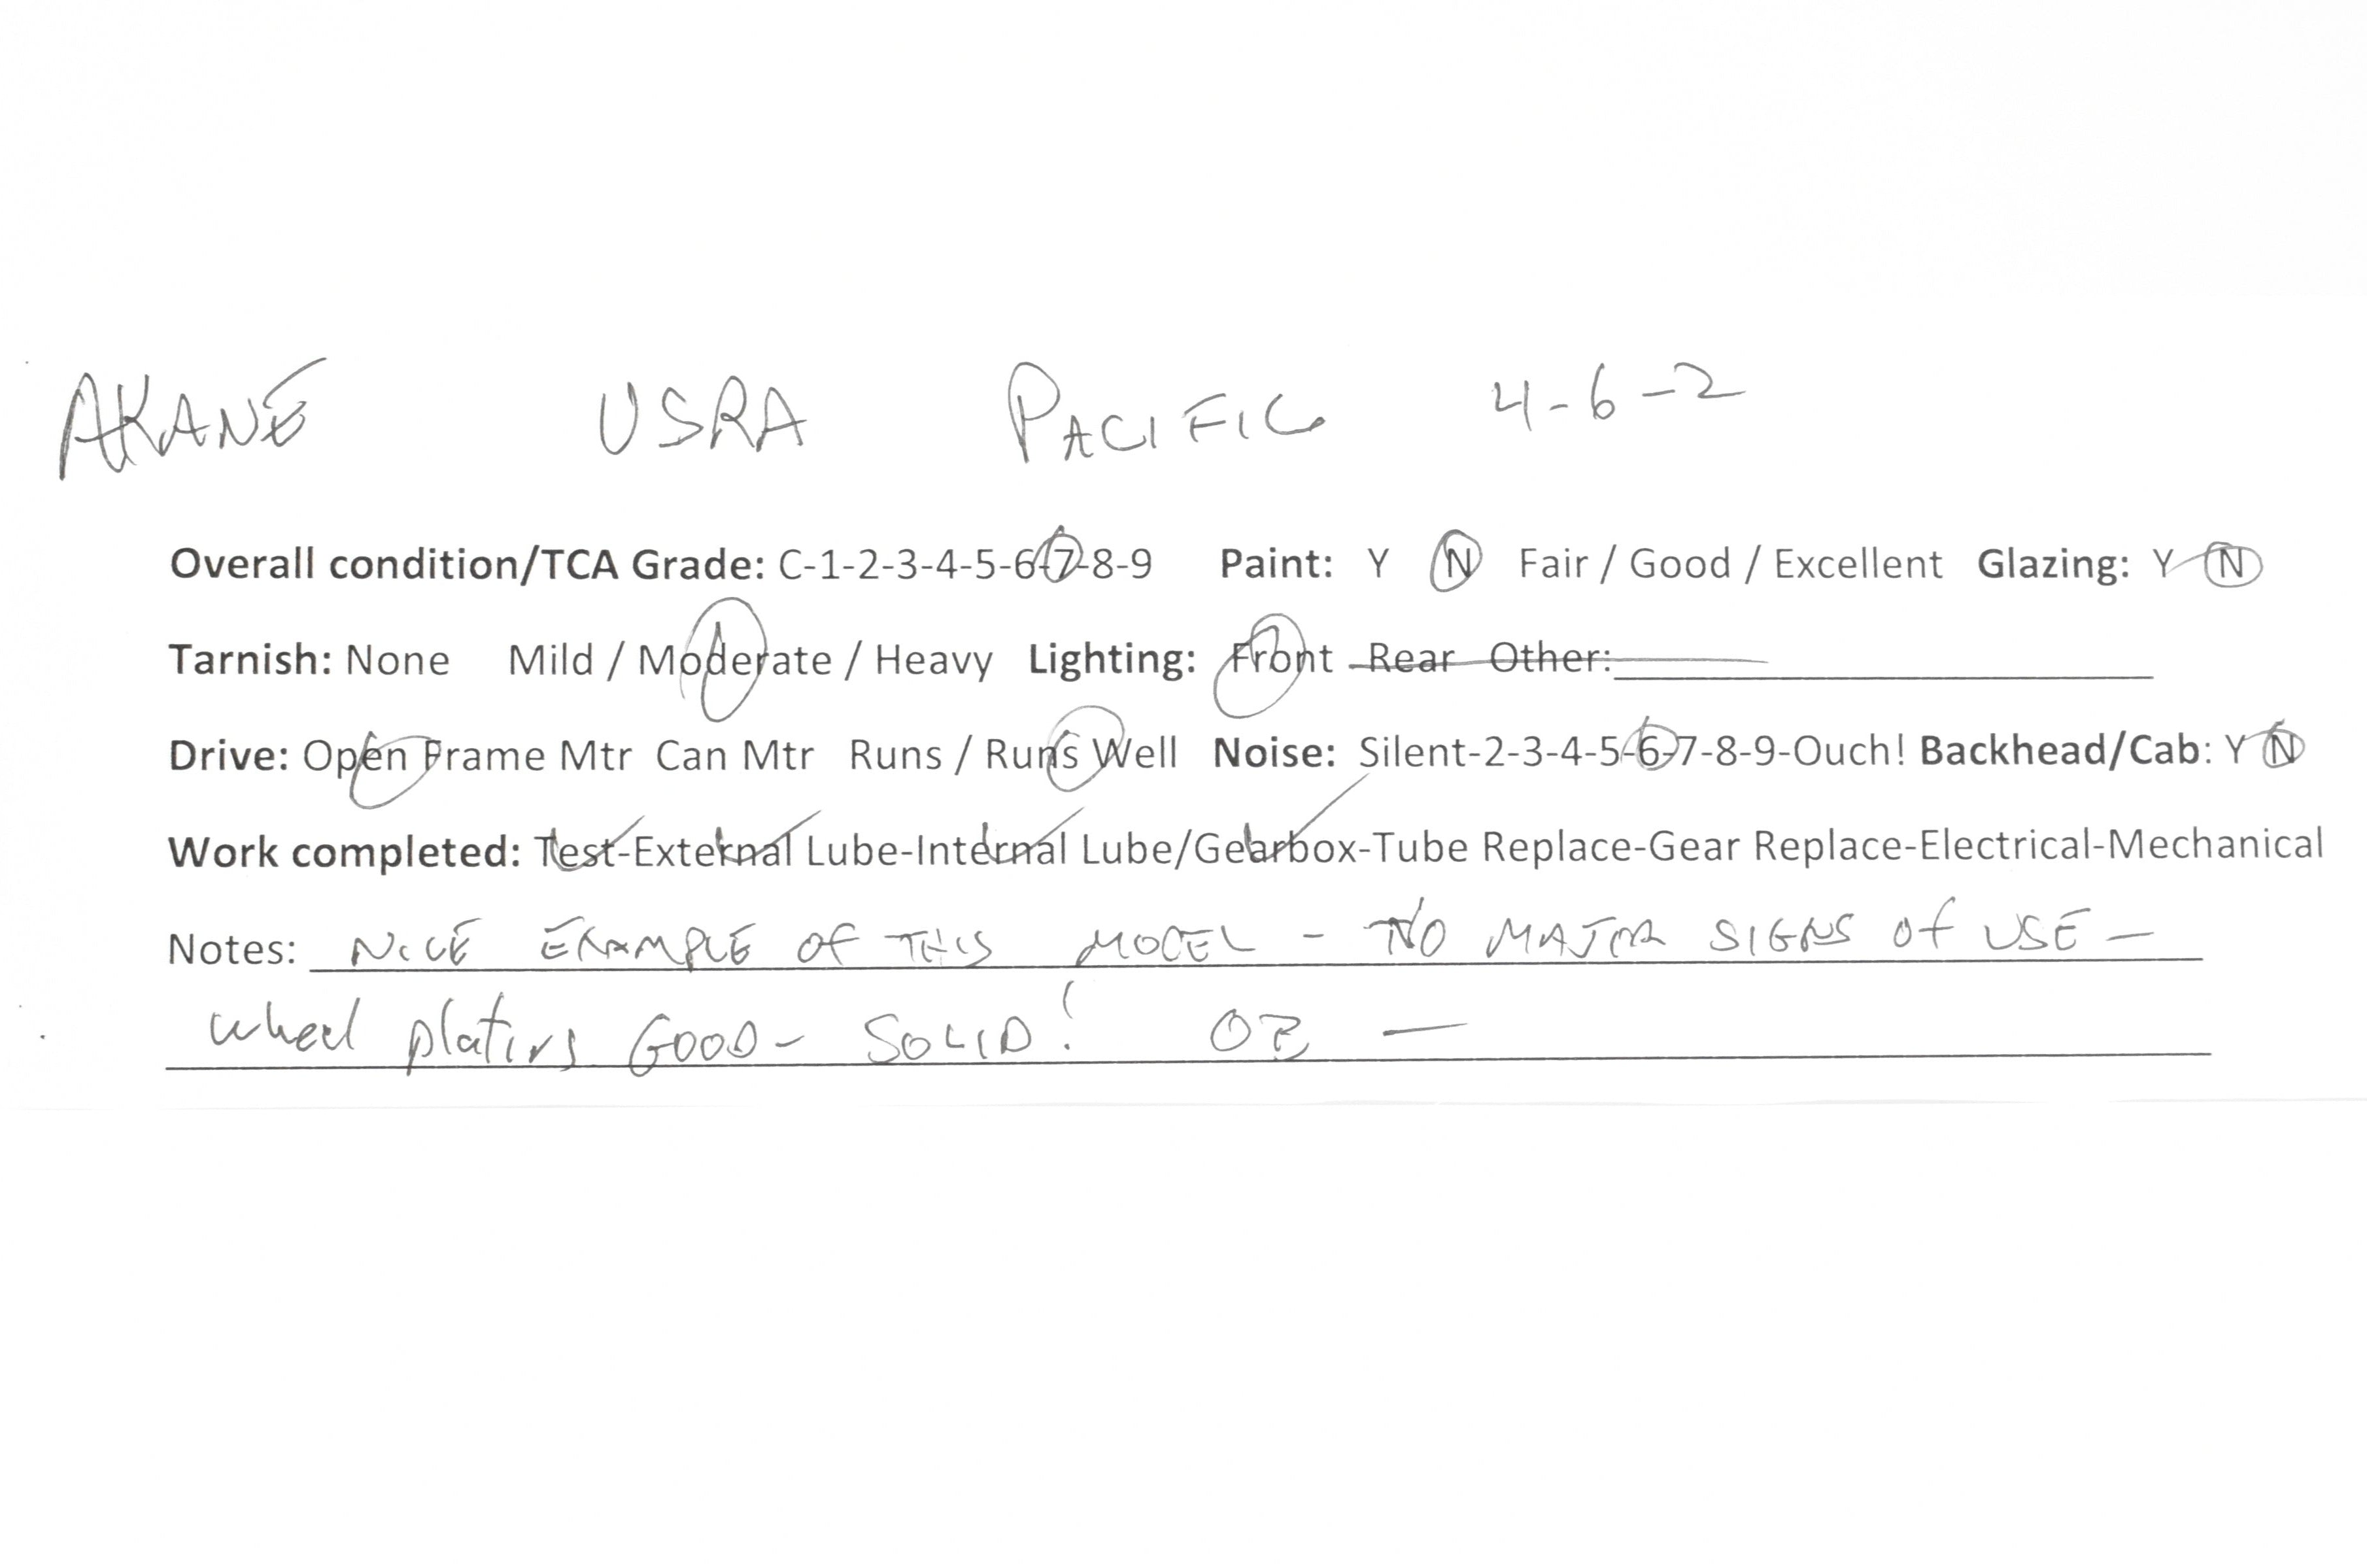 AKANE USRA PACIFIC 4-6-2
Overall condition/TCA Grade: C-1-2-3-4-5-6-7-8-9 Paint: Y N Fair / Good / Excellent Glazing: Y N
Tarnish: None Mild / Moderate / Heavy Lighting: Front Rear Other:
Drive: Open Frame Mtr Can Mtr Runs / Runs Well Noise: Silent-2-3-4-5-6-7-8-9-Ouch! Backhead/Cab: Y N
Work completed: Test-External Lube-Internal Lube/Gearbox-Tube Replace-Gear Replace-Electrical-Mechanical
Notes: NICE EXAMPLE OF THIS MODEL - NO MAJOR SIGNS OF USE -
wheel plating GOOD - SOLID! OB -